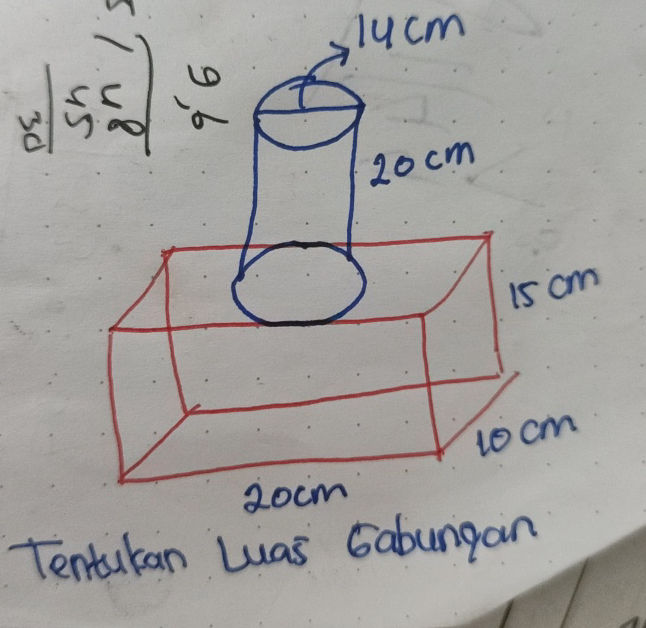 14 cm
20 cm
15 cm
10 cm
20cm
Tentukan Luas Gabungan